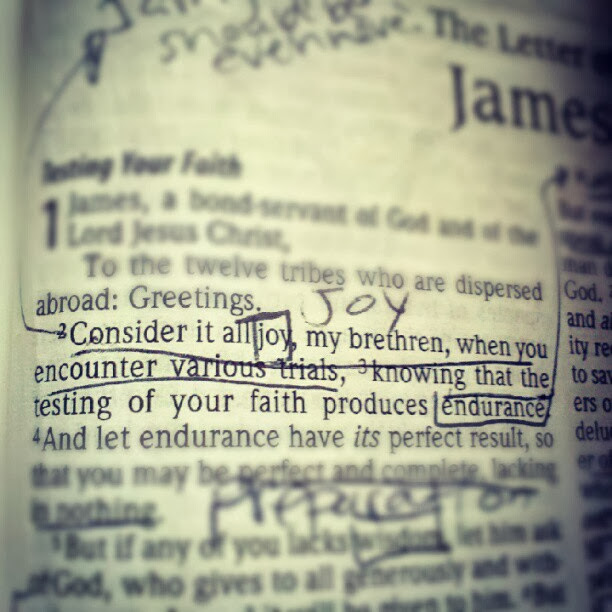 should be
The Letter
James
Testing Your Faith
1 James, a bond-servant of God and of the
Lord Jesus Christ,
To the twelve tribes who are dispersed
abroad: Greetings.
JOY
2 Consider it all joy, my brethren, when you
encounter various trials, 3 knowing that the
testing of your faith produces endurance.
4 And let endurance have its perfect result, so
that you may be perfect and complete, lacking
in nothing.
preparation
5 But if any of you lacks wisdom, let him ask
of God, who gives to all generously and with-
God.
and a
ity re
to sa
ers o
delu
er of